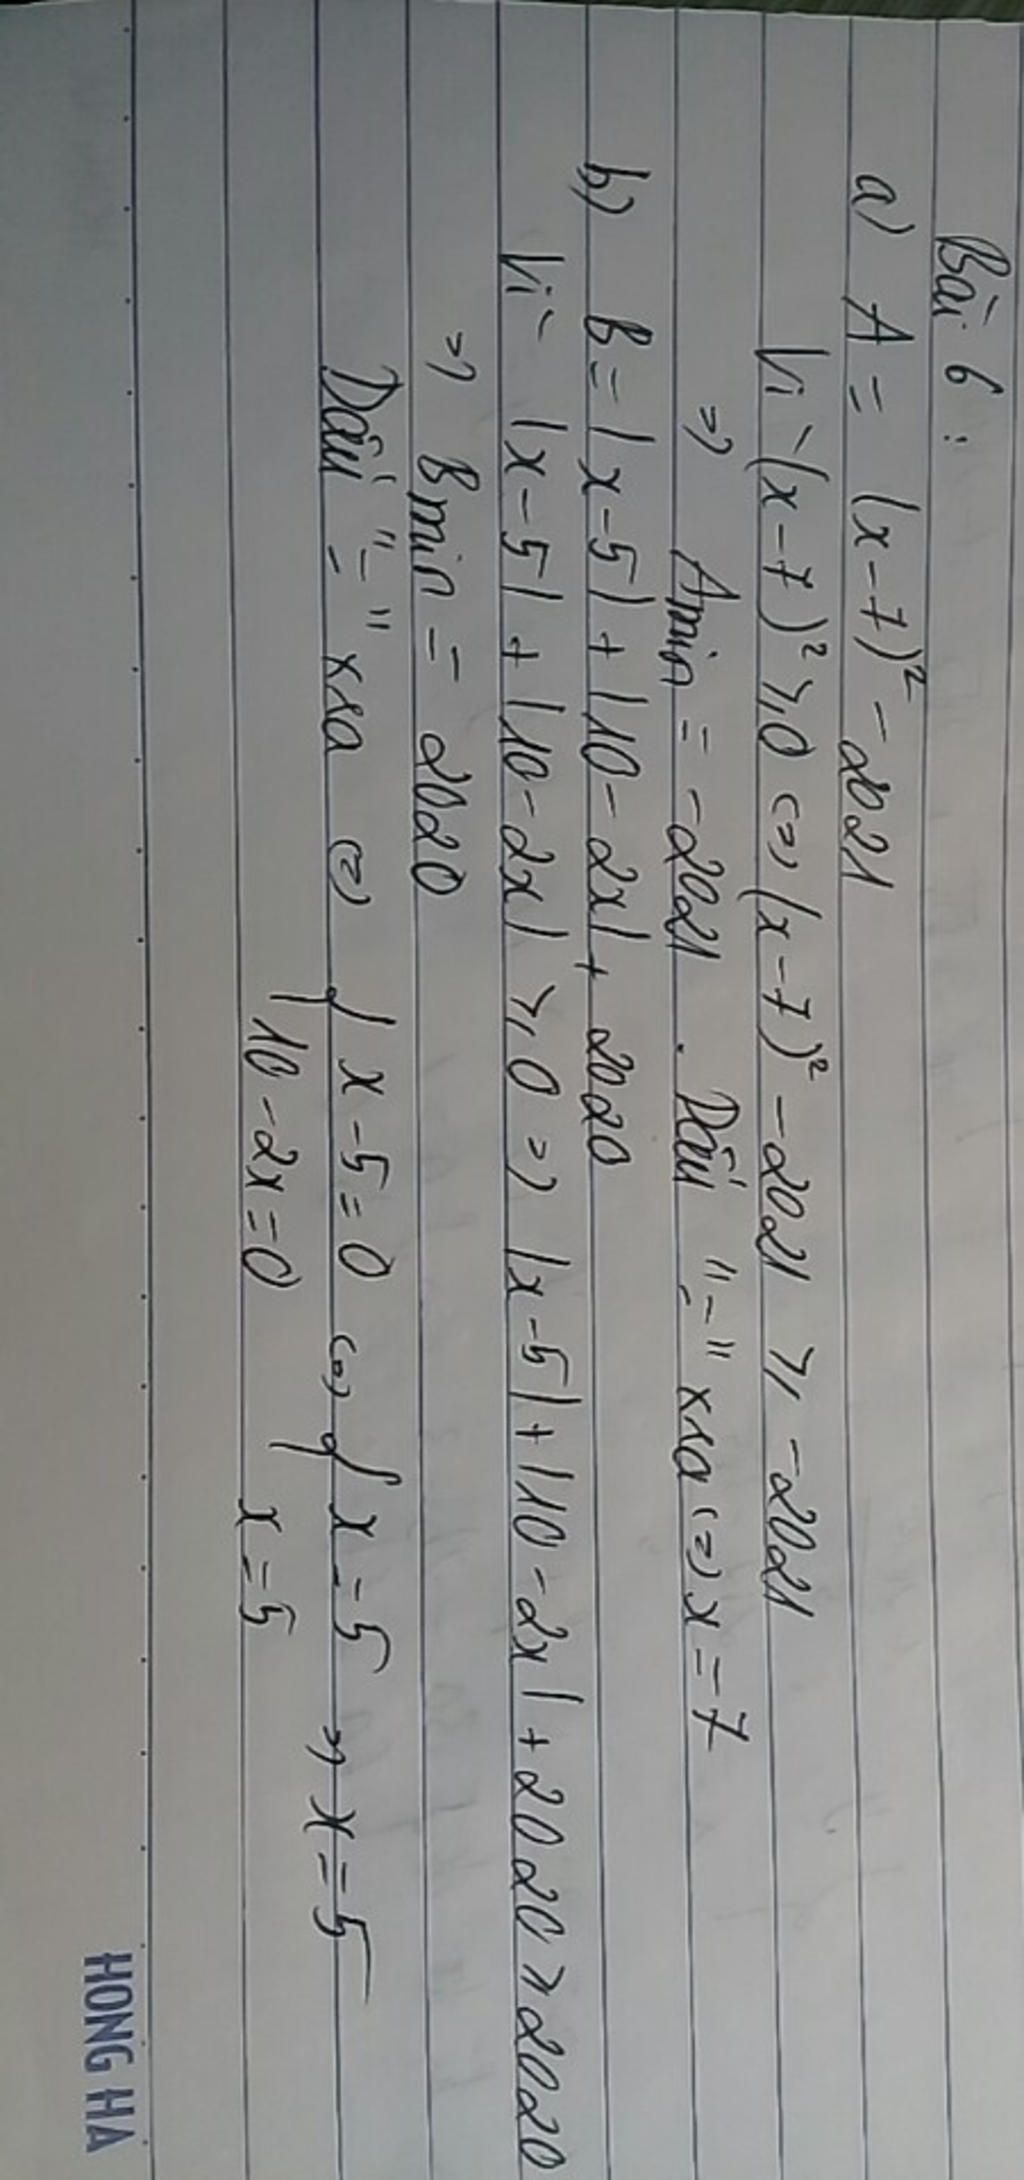 Bài 6 :
a) A = (x-7)² - 2021
Vì (x-7)² ≥ 0 <=> (x-7)² - 2021 ≥ -2021
=> Amin = -2021 . Dấu "=" xra <=> x = 7
b) B = |x-5| + |10-2x| + 2020
Vì |x-5| + |10-2x| ≥ 0 => |x-5| + |10-2x| + 2020 ≥ 2020
=> Bmin = 2020
Dấu "=" xra <=> { x-5=0 <=> { x=5 => x=5
10-2x=0 x=5
HONG HA